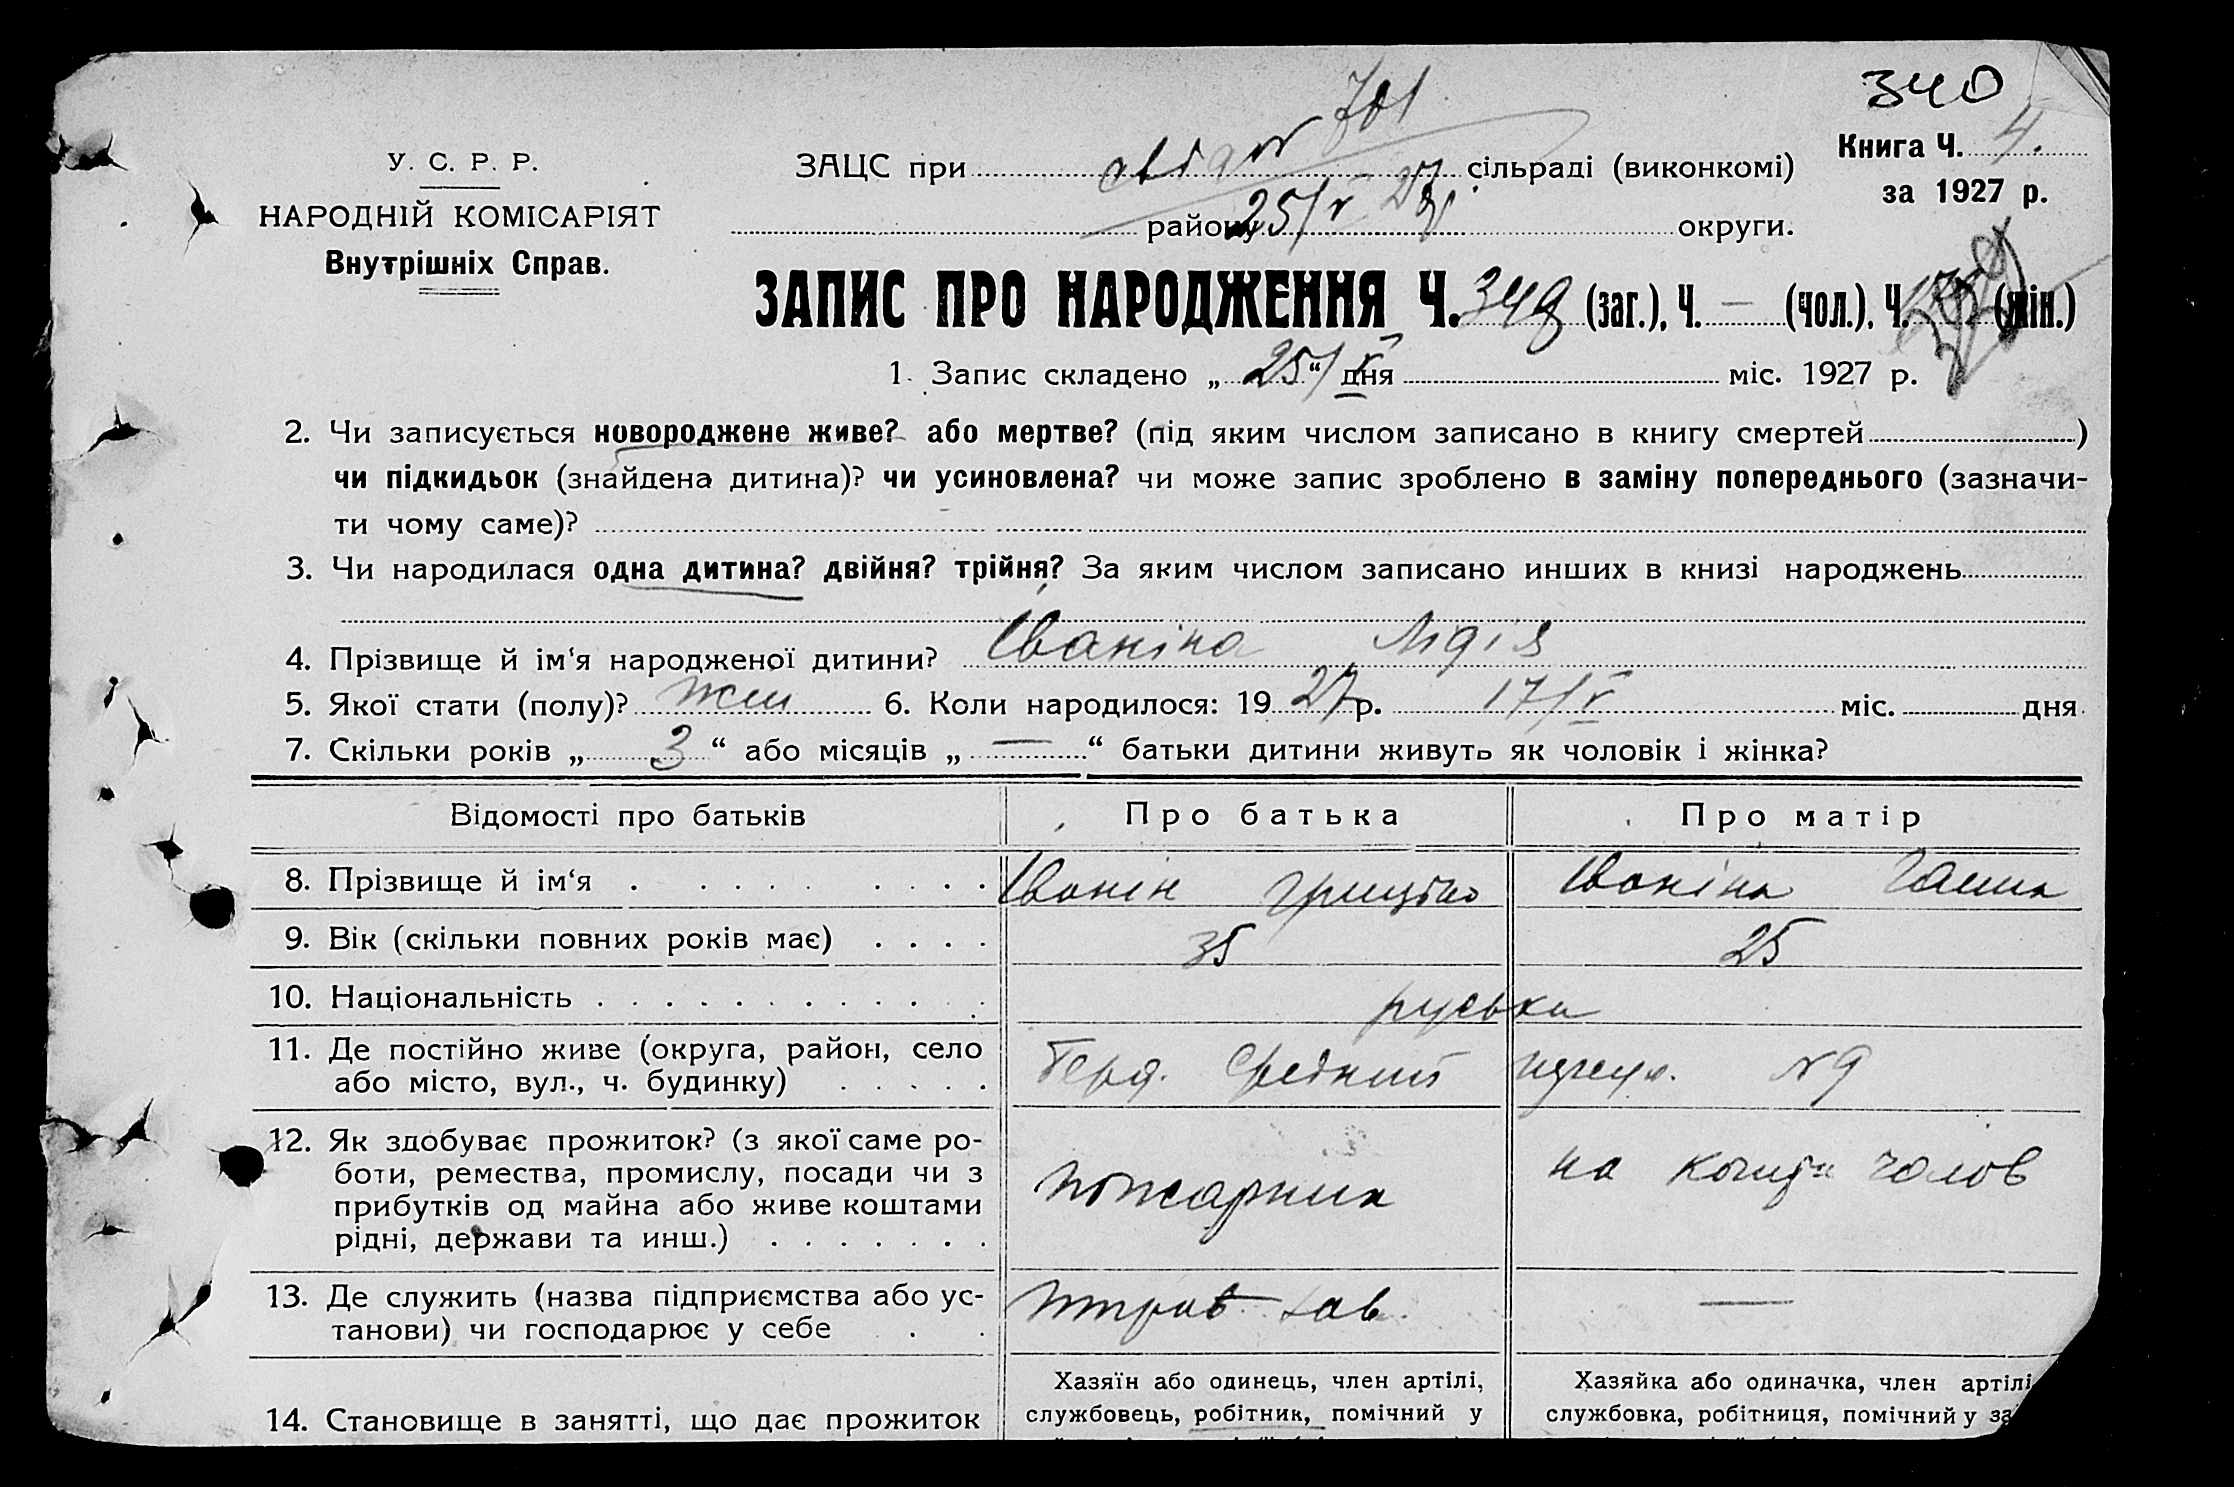 340
701
У. С. Р. Р.
ЗАЦС при сільраді (виконкомі)
Книга Ч. 4.
за 1927 р.
НАРОДНІЙ КОМІСАРІЯТ
району 25/V 27 округи.
Внутрішніх Справ.
ЗАПИС ПРО НАРОДЖЕННЯ Ч. 349 (заг.), Ч. — (чол.), Ч. (жін.)
1. Запис складено „ 25/V “ дня міс. 1927 р.
2. Чи записується новороджене живе? або мертве? (під яким числом записано в книгу смертей )
чи підкидьок (знайдена дитина)? чи усиновлена? чи може запис зроблено в заміну попереднього (зазначи-
ти чому саме)?
3. Чи народилася одна дитина? двійня? трійня? За яким числом записано инших в книзі народжень
4. Прізвище й ім‘я народженої дитини? Іваніна Лідія
5. Якої стати (полу)? жін 6. Коли народилося: 1927 р. 17/V міс. дня
7. Скільки років „ 3 “ або місяців „ — “ батьки дитини живуть як чоловік і жінка?
Відомості про батьків Про батька Про матір
8. Прізвище й ім‘я Іванін Грицько Іваніна Ганна
9. Вік (скільки повних років має) 35 25
10. Національність руська
11. Де постійно живе (округа, район, село
або місто, вул., ч. будинку) N 9
12. Як здобуває прожиток? (з якої саме ро-
боти, ремества, промислу, посади чи з
прибутків од майна або живе коштами
рідні, держави та инш.)
пожарник на кошти чолов
13. Де служить (назва підприємства або ус-
танови) чи господарює у себе зав. —
14. Становище в занятті, що дає прожиток
Хазяїн або одинець, член артілі,
службовець, робітник, помічний у
Хазяйка або одиначка, член артілі
службовка, робітниця, помічний у за